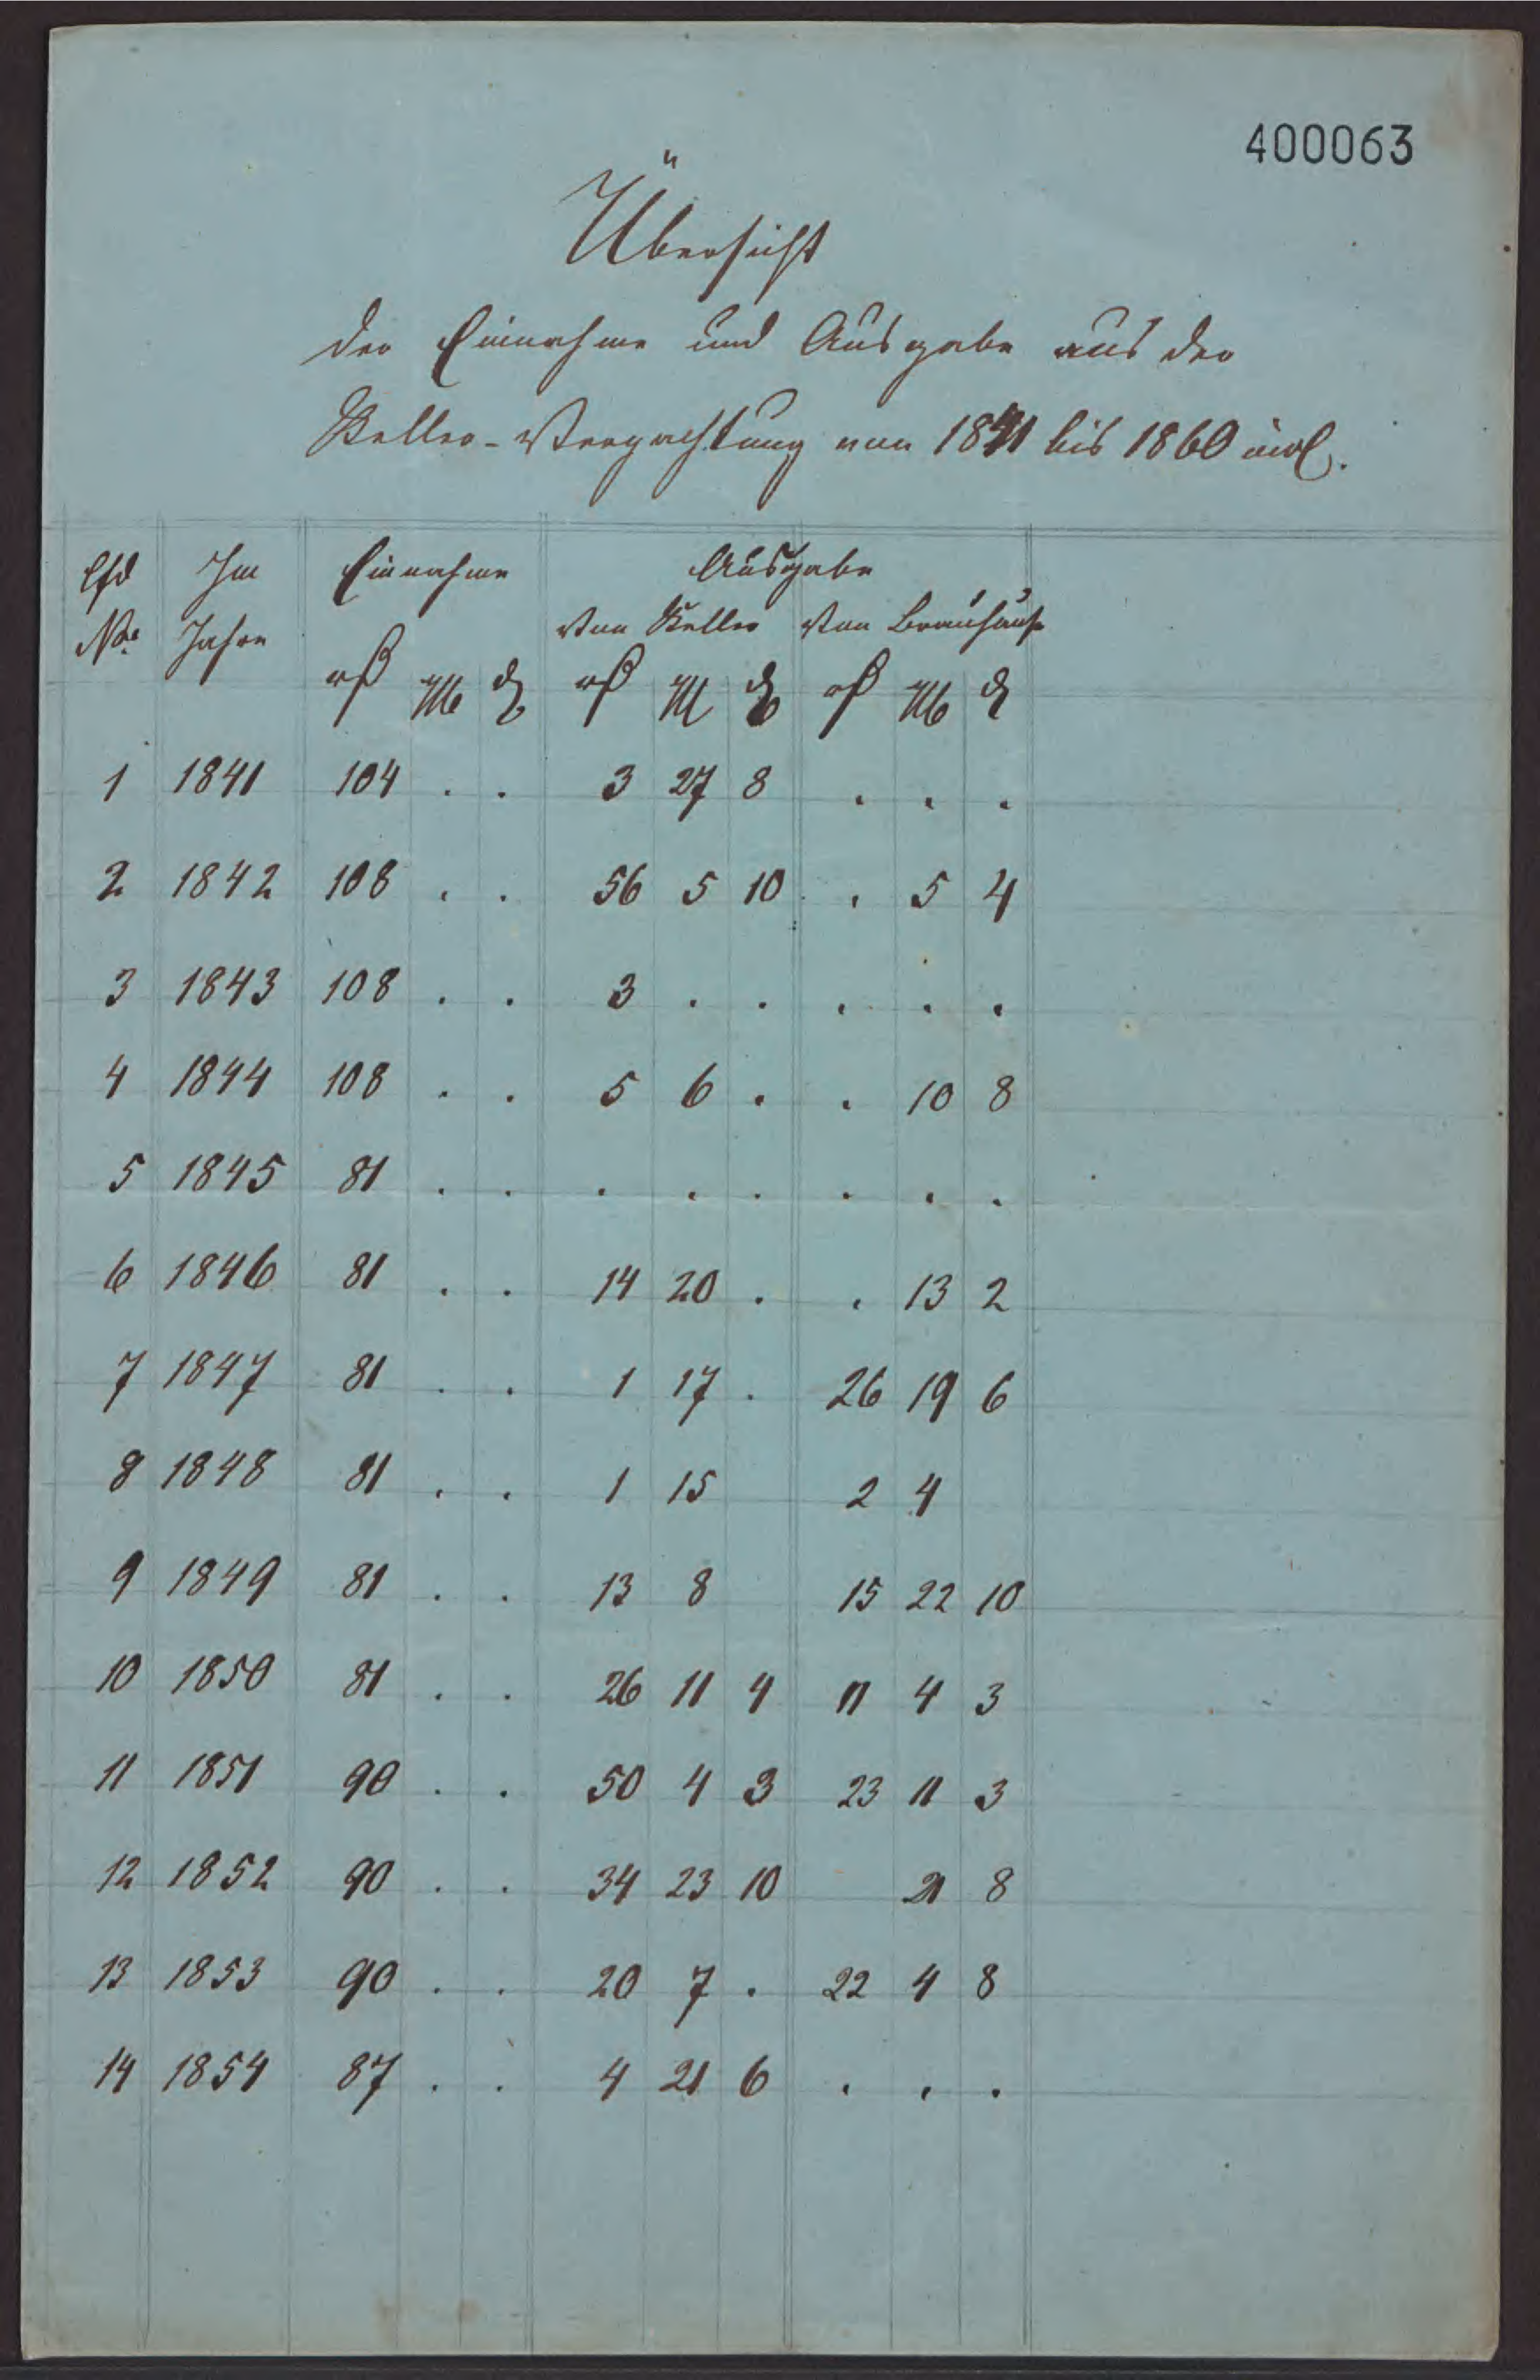 400063
Übersicht
der Einnahme und Ausgabe aus der
Keller-Verpachtung von 1841 bis 1860 incl.
Lfd Im Einnahme Ausgabe
No. Jahre Von Keller Von Brauhause
1 1841 104 . . 3 27 8 . . .
2 1842 108 . . 56 5 10 . 5 4
3 1843 108 . . 3 . . . . .
4 1844 108 . . 5 6 . . 10 8
5 1845 81 . . . . . . . .
6 1846 81 . . 14 20 . . 13 2
7 1847 81 . . 1 17 . 26 19 6
8 1848 81 . . 1 15 2 4
9 1849 81 . . 13 8 15 22 10
10 1850 81 . . 26 11 4 11 4 3
11 1851 90 . . 50 4 3 23 11 3
12 1852 90 . . 34 23 10 21 8
13 1853 90 . . 20 7 . 22 4 8
14 1854 87 . . 4 21 6 . . .